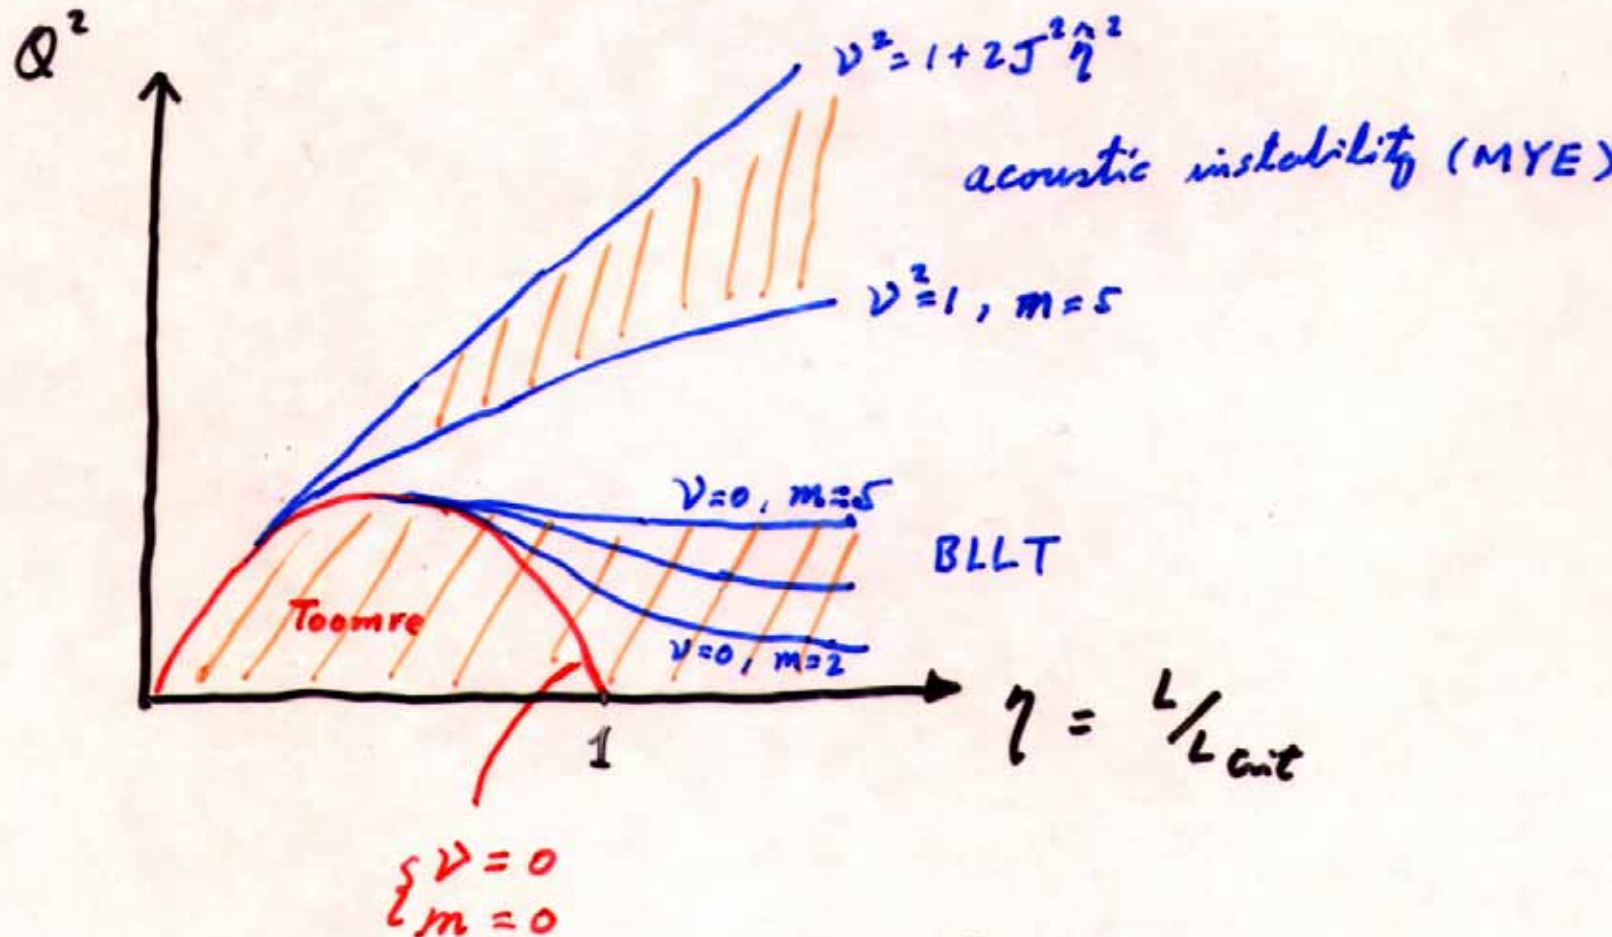 Q²
ν² = 1 + 2J²η̂²
acoustic instability (MYE)
ν² = 1, m = 5
ν=0, m=5
BLLT
Toomre
ν=0, m=2
η = L/L_crit
1
{ ν = 0
m = 0